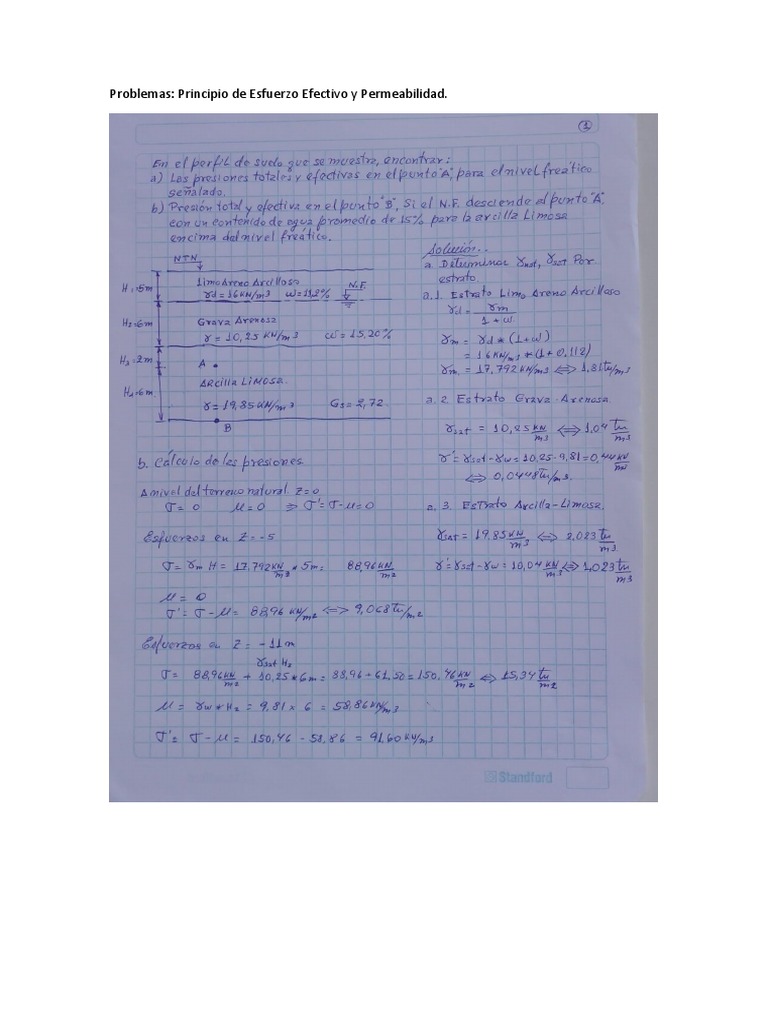 Problemas: Principio de Esfuerzo Efectivo y Permeabilidad.
1
En el perfil de suelo que se muestra, encontrar:
a) Las presiones totales y efectivas en el punto "A", para el nivel freático
señalado.
b) Presión total y efectiva en el punto "B", Si el N.F. desciende al punto "A",
con un contenido de agua promedio de 15% para la arcilla Limosa
encima del nivel freático.
NTN
H1=5m
Limo Areno Arcilloso
γd=16KN/m3 ω=11,2%
N.F.
H2=6m
Grava Arenosa
γ=10,25 KN/m3 ω=15,20%
H3=2m
A
Arcilla Limosa.
H4=6m
γ=19,85KN/m3 Gs=2,72
B
Solución..
a. Determinar γnat, γsat Por
estrato.
a.1. Estrato Limo Areno Arcilloso
γd = γm
1+ω
γm = γd * (1+ω)
= 16KN/m3 *(1+0,112)
γm = 17,792KN/m3 ⇔ 1,81tn/m3
a.2 Estrato Grava-Arenosa
γsat = 10,25 KN/m3 ⇔ 1,04 tn/m3
γ'=γsat-γw=10,25-9,81=0,44 KN/m
⇔ 0,0448tn/m3.
a.3. Estrato Arcilla-Limosa.
γsat= 19,85KN/m3 ⇔ 2,023 tn/m3.
γ'=γsat-γw=10,04 KN/m3 ⇔ 1,023 tn/m3
b. Cálculo de las presiones.
A nivel del terreno natural Z=0
σ=0 μ=0 ⇒ σ'=σ-μ=0
Esfuerzos en Z=-5
σ=γm H = 17,792 KN/m3 * 5m= 88,96 KN/m2
μ=0
σ'= σ-μ= 88,96 KN/m2 ⇔ 9,068 tn/m2
Esfuerzos en Z= -11m
γsat H2
σ= 88,96 KN/m2 + 10,25*6m= 88,96+61,50=150,46 KN/m2 ⇔ 15,34 tn/m2
μ= γw*H2 = 9,81 x 6 = 58,86KN/m3
σ'= σ-μ = 150,46 - 58,86 = 91,60 KN/m3
Standford